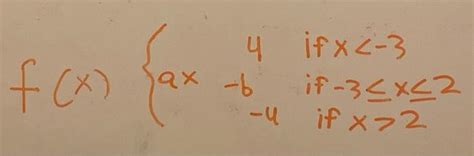 4 if x < -3
f(x) { ax -b if -3 ≤ x ≤ 2
-4 if x > 2